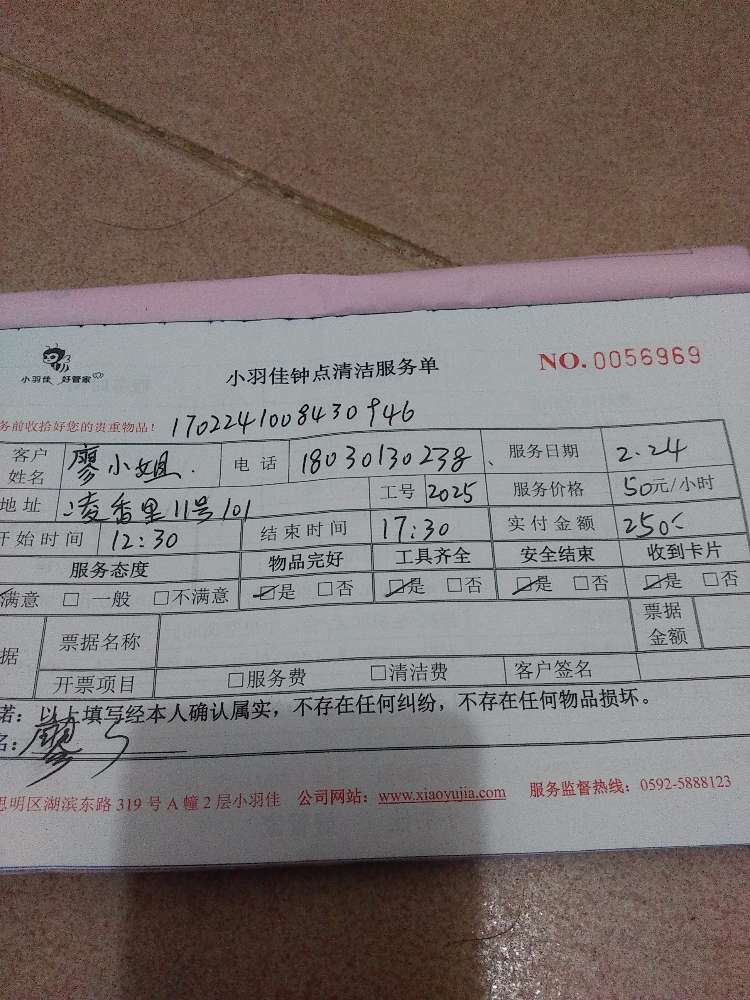 小羽佳 好管家
小羽佳钟点清洁服务单
NO.0056969
务前收拾好您的贵重物品! 1702241008430946
客户姓名 廖小姐. 电话 18030130238、 服务日期 2.24
地址 凌香里11号101 工号 2025 服务价格 50元/小时
开始时间 12:30 结束时间 17:30 实付金额 250
服务态度 物品完好 工具齐全 安全结束 收到卡片
满意 □ 一般 □不满意 ☑是 □否 ☑是 □否 ☑是 □否 ☑是 □否
据 票据名称 票据金额
开票项目 □服务费 □清洁费 客户签名
诺：以上填写经本人确认属实，不存在任何纠纷，不存在任何物品损坏。
名：廖
思明区湖滨东路 319 号 A 幢 2 层小羽佳 公司网站：www.xiaoyujia.com 服务监督热线：0592-5888123